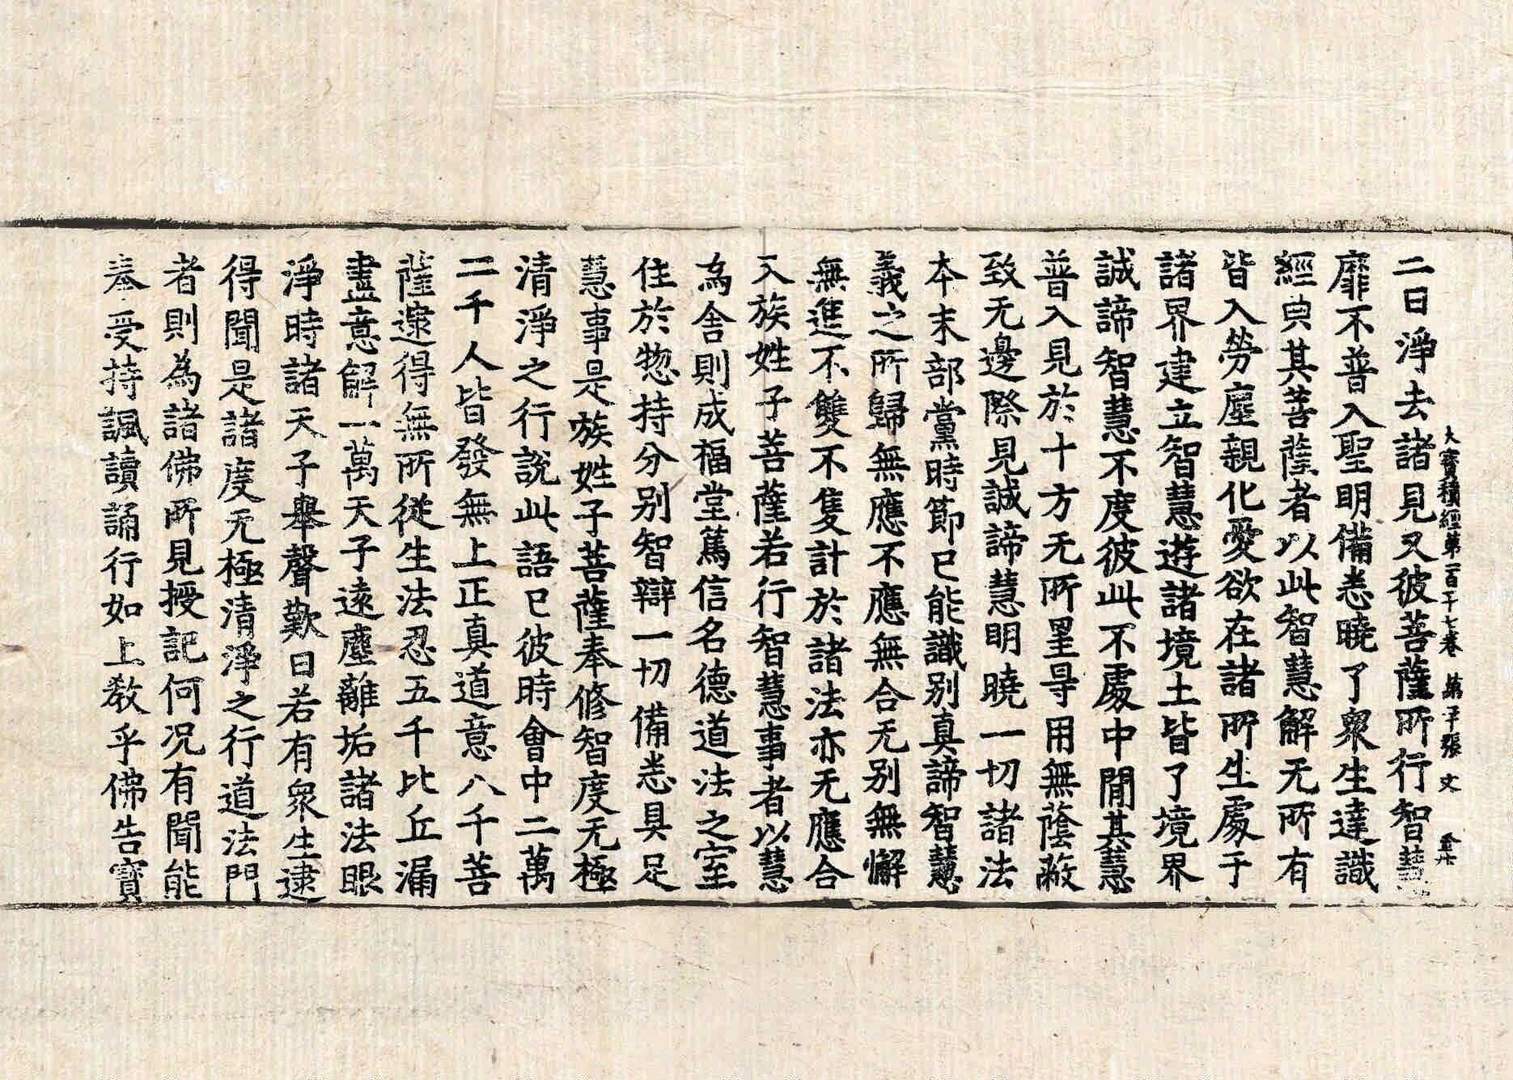 大寶積經第一百十七卷 第二十張 文 
二曰淨去諸見又彼菩薩所行智慧
靡不普入聖明備悉曉了衆生達識
經典其菩薩者以此智慧解无所有
皆入勞塵親化愛欲在諸所生處于
諸界建立智慧遊諸境土皆了境界
誠諦智慧不度彼此不處中閒其慧
普入見於十方无所罣㝵用無蔭蔽
致无邊際見誠諦慧明曉一切諸法
本末部黨時節已能識別真諦智慧
義之所歸無應不應無合无別無懈
無進不雙不隻計於諸法亦无應合
又族姓子菩薩若行智慧事者以慧
為舍則成福堂篤信名德道法之室
住於惣持分別智辯一切備悉具足
慧事是族姓子菩薩奉修智度无極
清淨之行說此語已彼時會中二萬
二千人皆發無上正真道意八千菩
薩逮得無所從生法忍五千比丘漏
盡意解一萬天子遠塵離垢諸法眼
淨時諸天子舉聲歎曰若有衆生逮
得聞是諸度无極清淨之行道法門
者則為諸佛所見授記何况有聞能
奉受持諷讀誦行如上教乎佛告寶